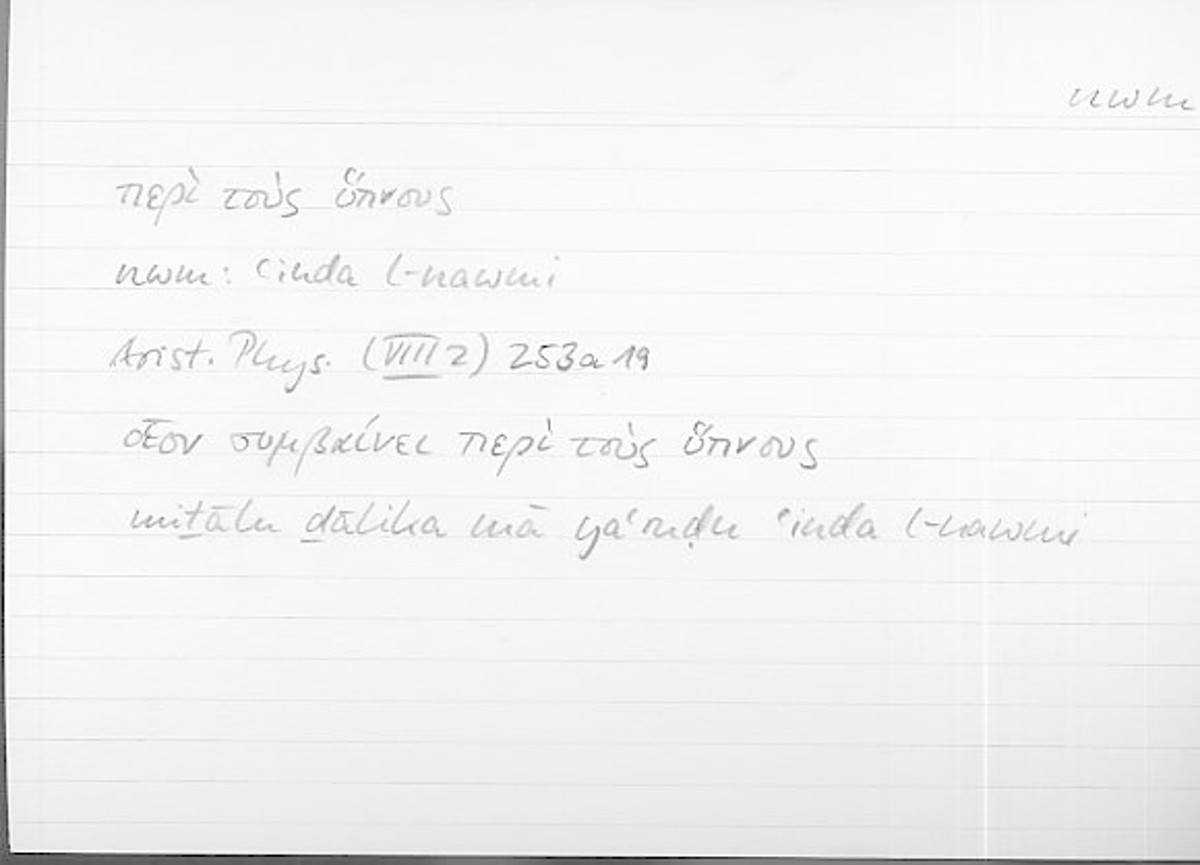 nwm
περὶ τοὺς ὕπνους
nwm: ʿinda l-nawmi
Arist. Phys. (VIII 2) 253a19
οἷον συμβαίνει περὶ τοὺς ὕπνους
miṯālu ḏālika mā yaʿruḍu ʿinda l-nawmi